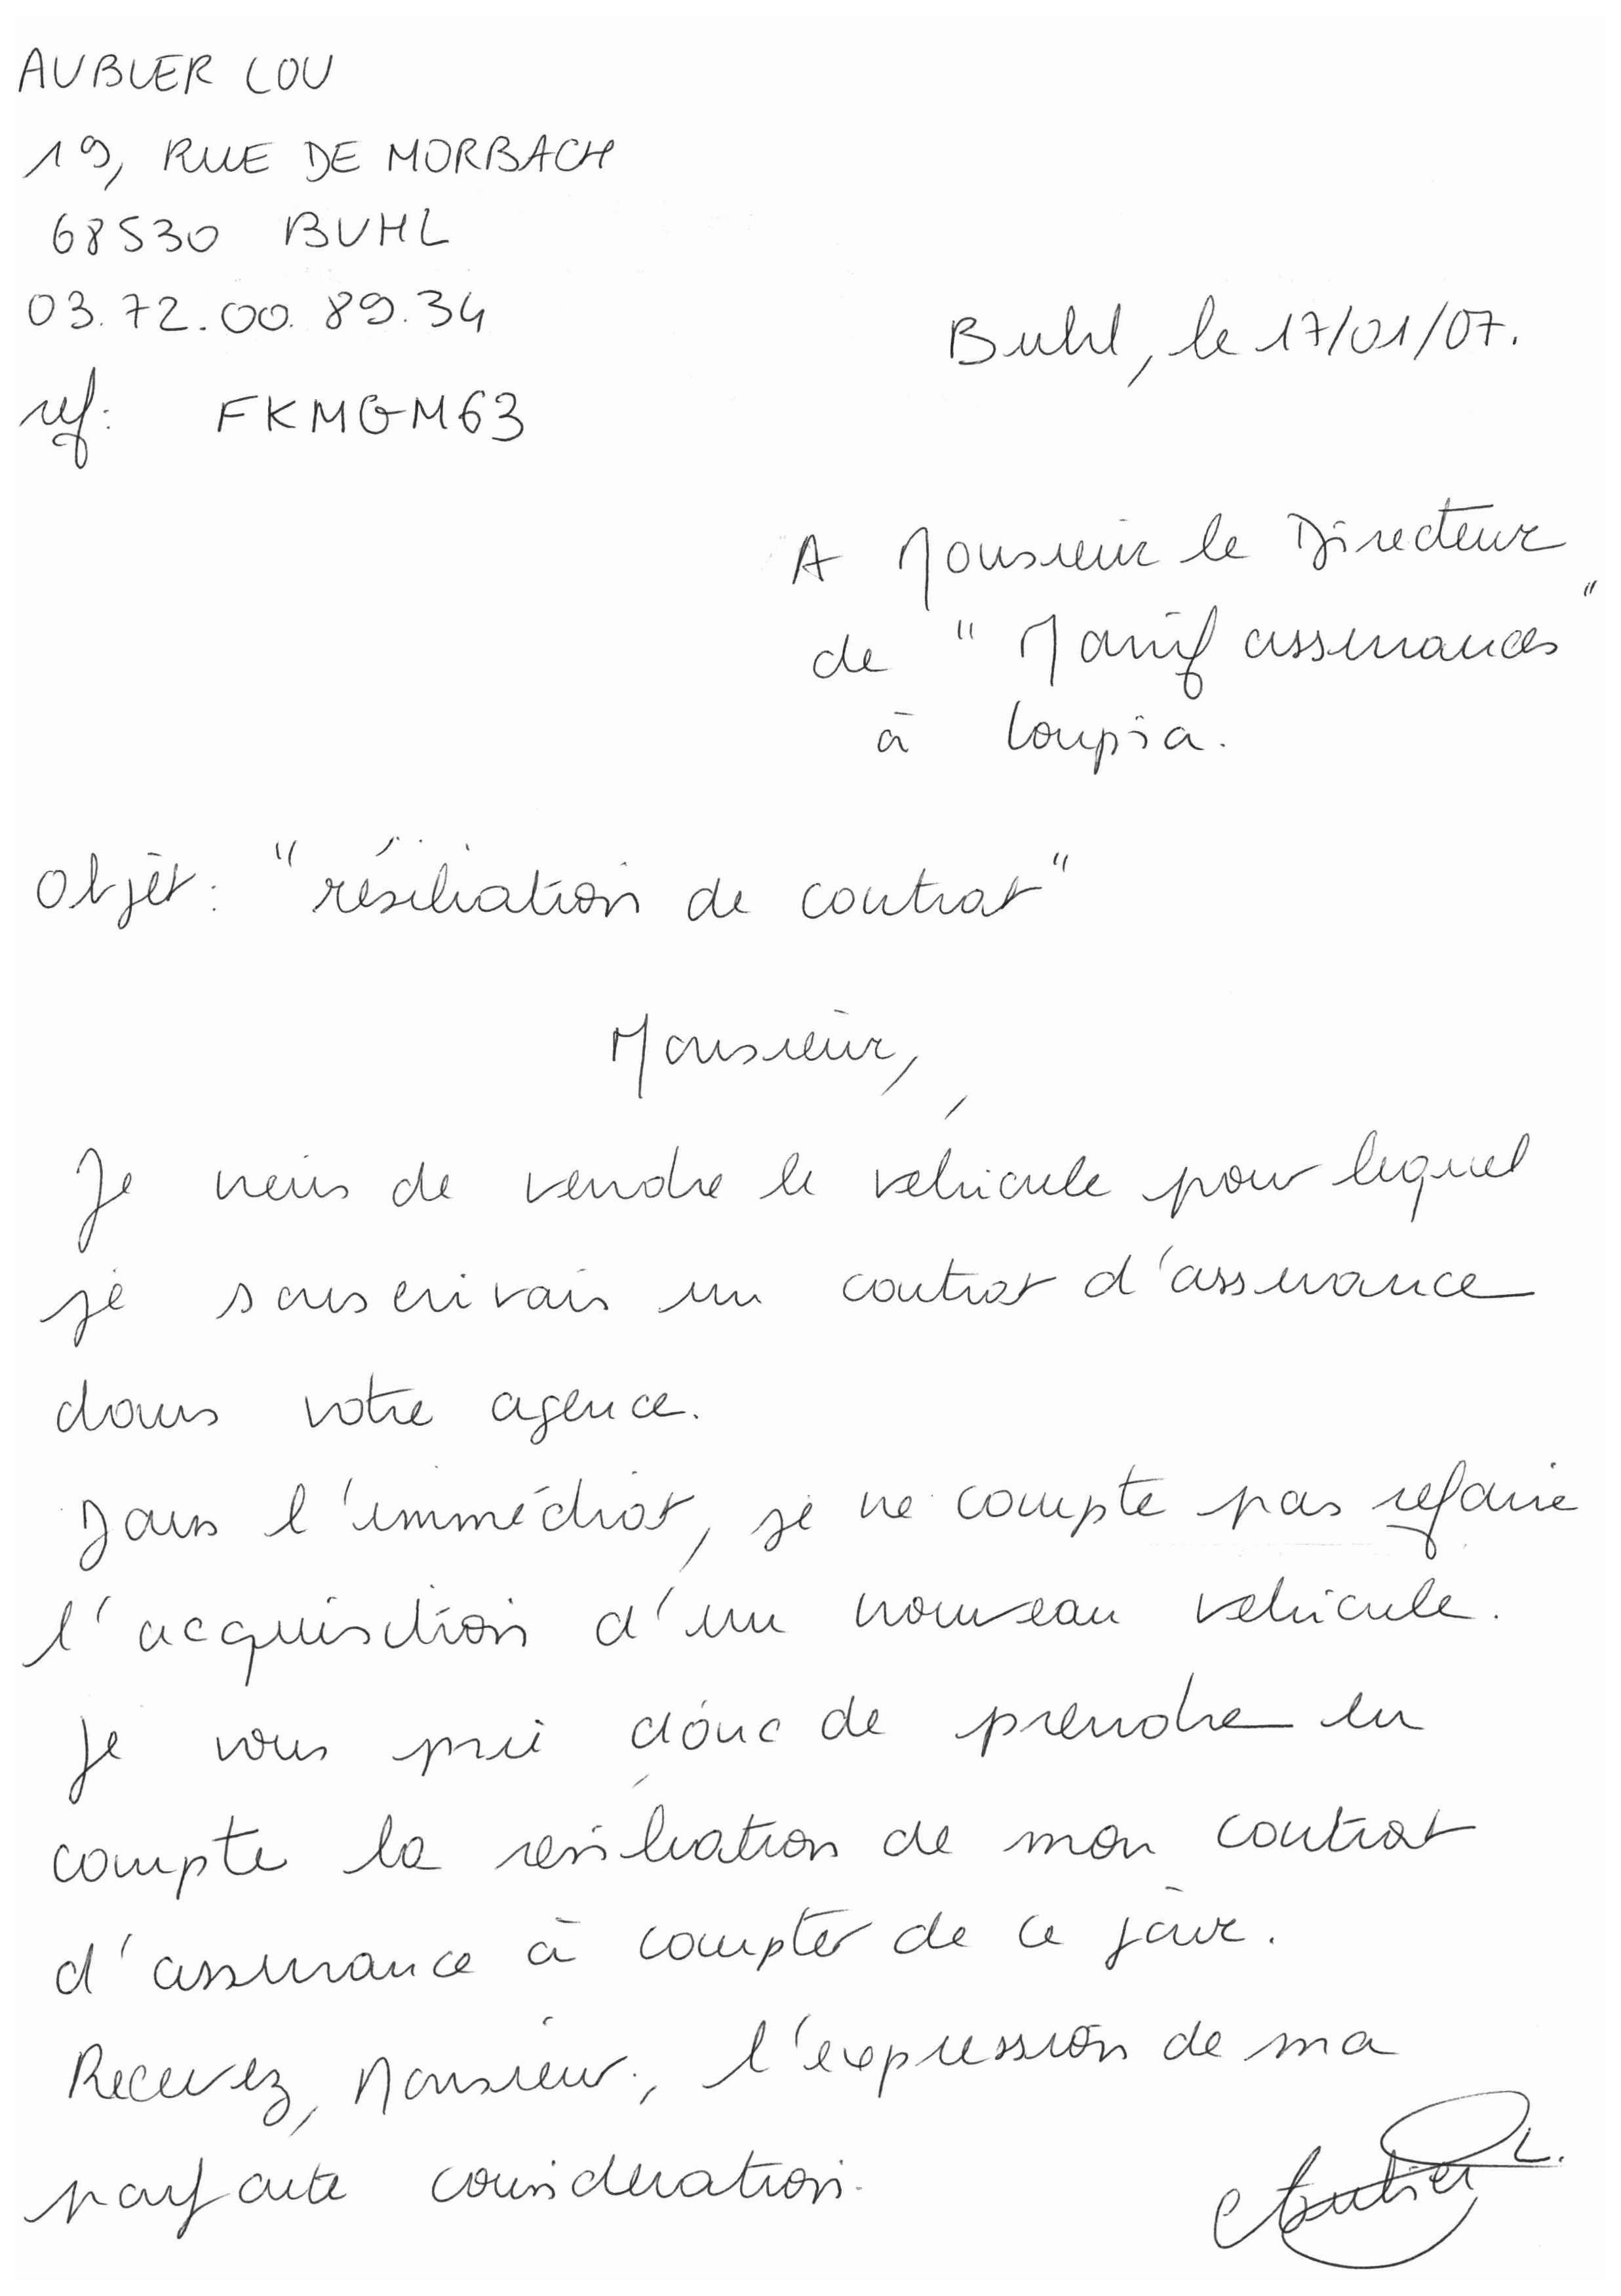 AUBLIER LOU
19, RUE DE MORBACH
68530 BUHL
03.72.00.89.34
Buhl, le 17/01/07.
ref: FKMGM63
A Monsieur le Directeur
de "Manif assurances"
à Loupia.
Objet: "résiliation de contrat"
Monsieur,
Je viens de vendre le véhicule pour lequel
je souscrivais un contrat d'assurance
dans votre agence.
Dans l'immédiat, je ne compte pas refaire
l'acquisition d'un nouveau vehicule.
Je vous prie donc de prendre en
compte la résiliation de mon contrat
d'assurance à compter de ce jour.
Recevez, Monsieur, l'expression de ma
parfaite considération.